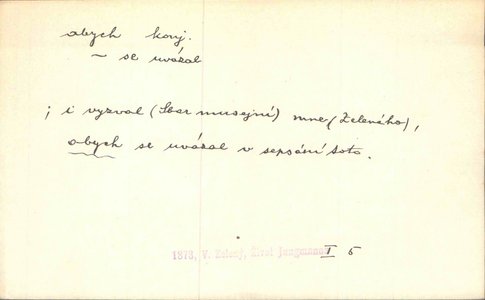 abych konj.
~ se uvázal
; i vyzval (Sbor musejní) mne (Zeleného),
abych se uvázal v sepsání toto.
1873, V. Zelený, Život Jungmannův I 5